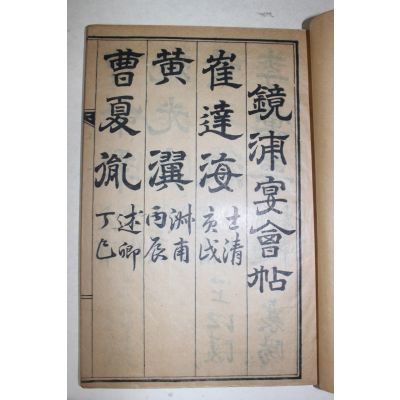 鏡浦宴會帖
崔達海
士清
庚戌
黃瀷
洲南
丙辰
曹夏胤
述卿
丁巳